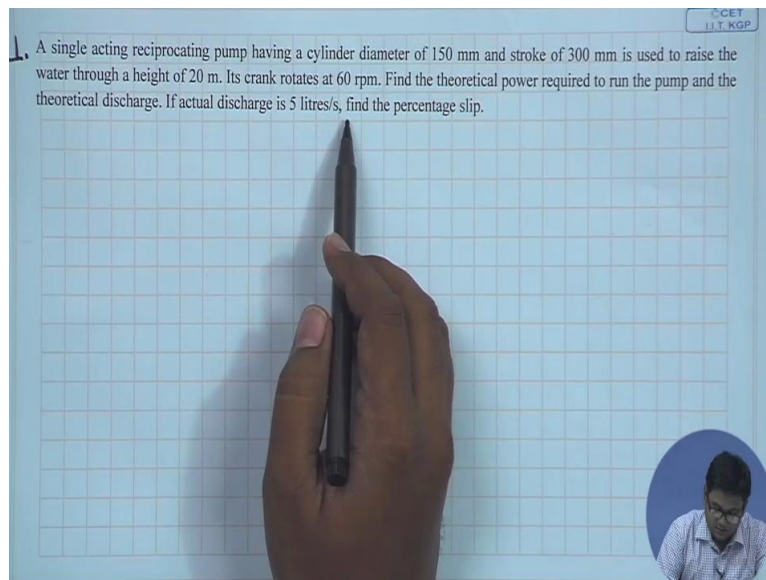 CCET
I.I.T. KGP
1. A single acting reciprocating pump having a cylinder diameter of 150 mm and stroke of 300 mm is used to raise the
water through a height of 20 m. Its crank rotates at 60 rpm. Find the theoretical power required to run the pump and the
theoretical discharge. If actual discharge is 5 litres/s, find the percentage slip.